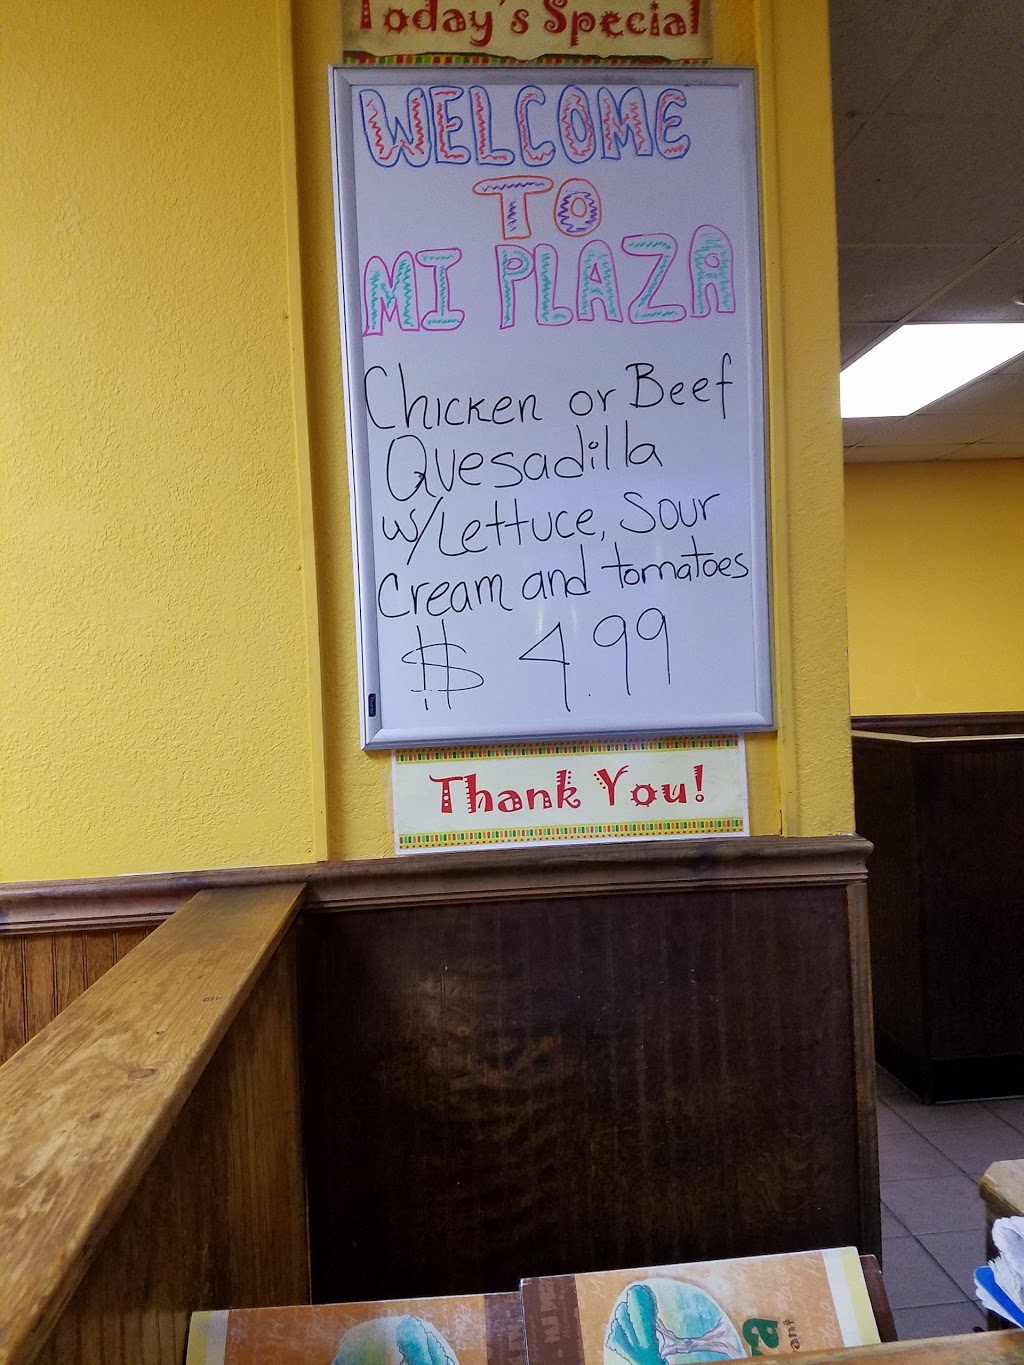 Today's Special
WELCOME
TO
MI PLAZA
Chicken or Beef
Quesadilla
w/Lettuce, Sour
cream and tomatoes
$ 4.99
Thank You!